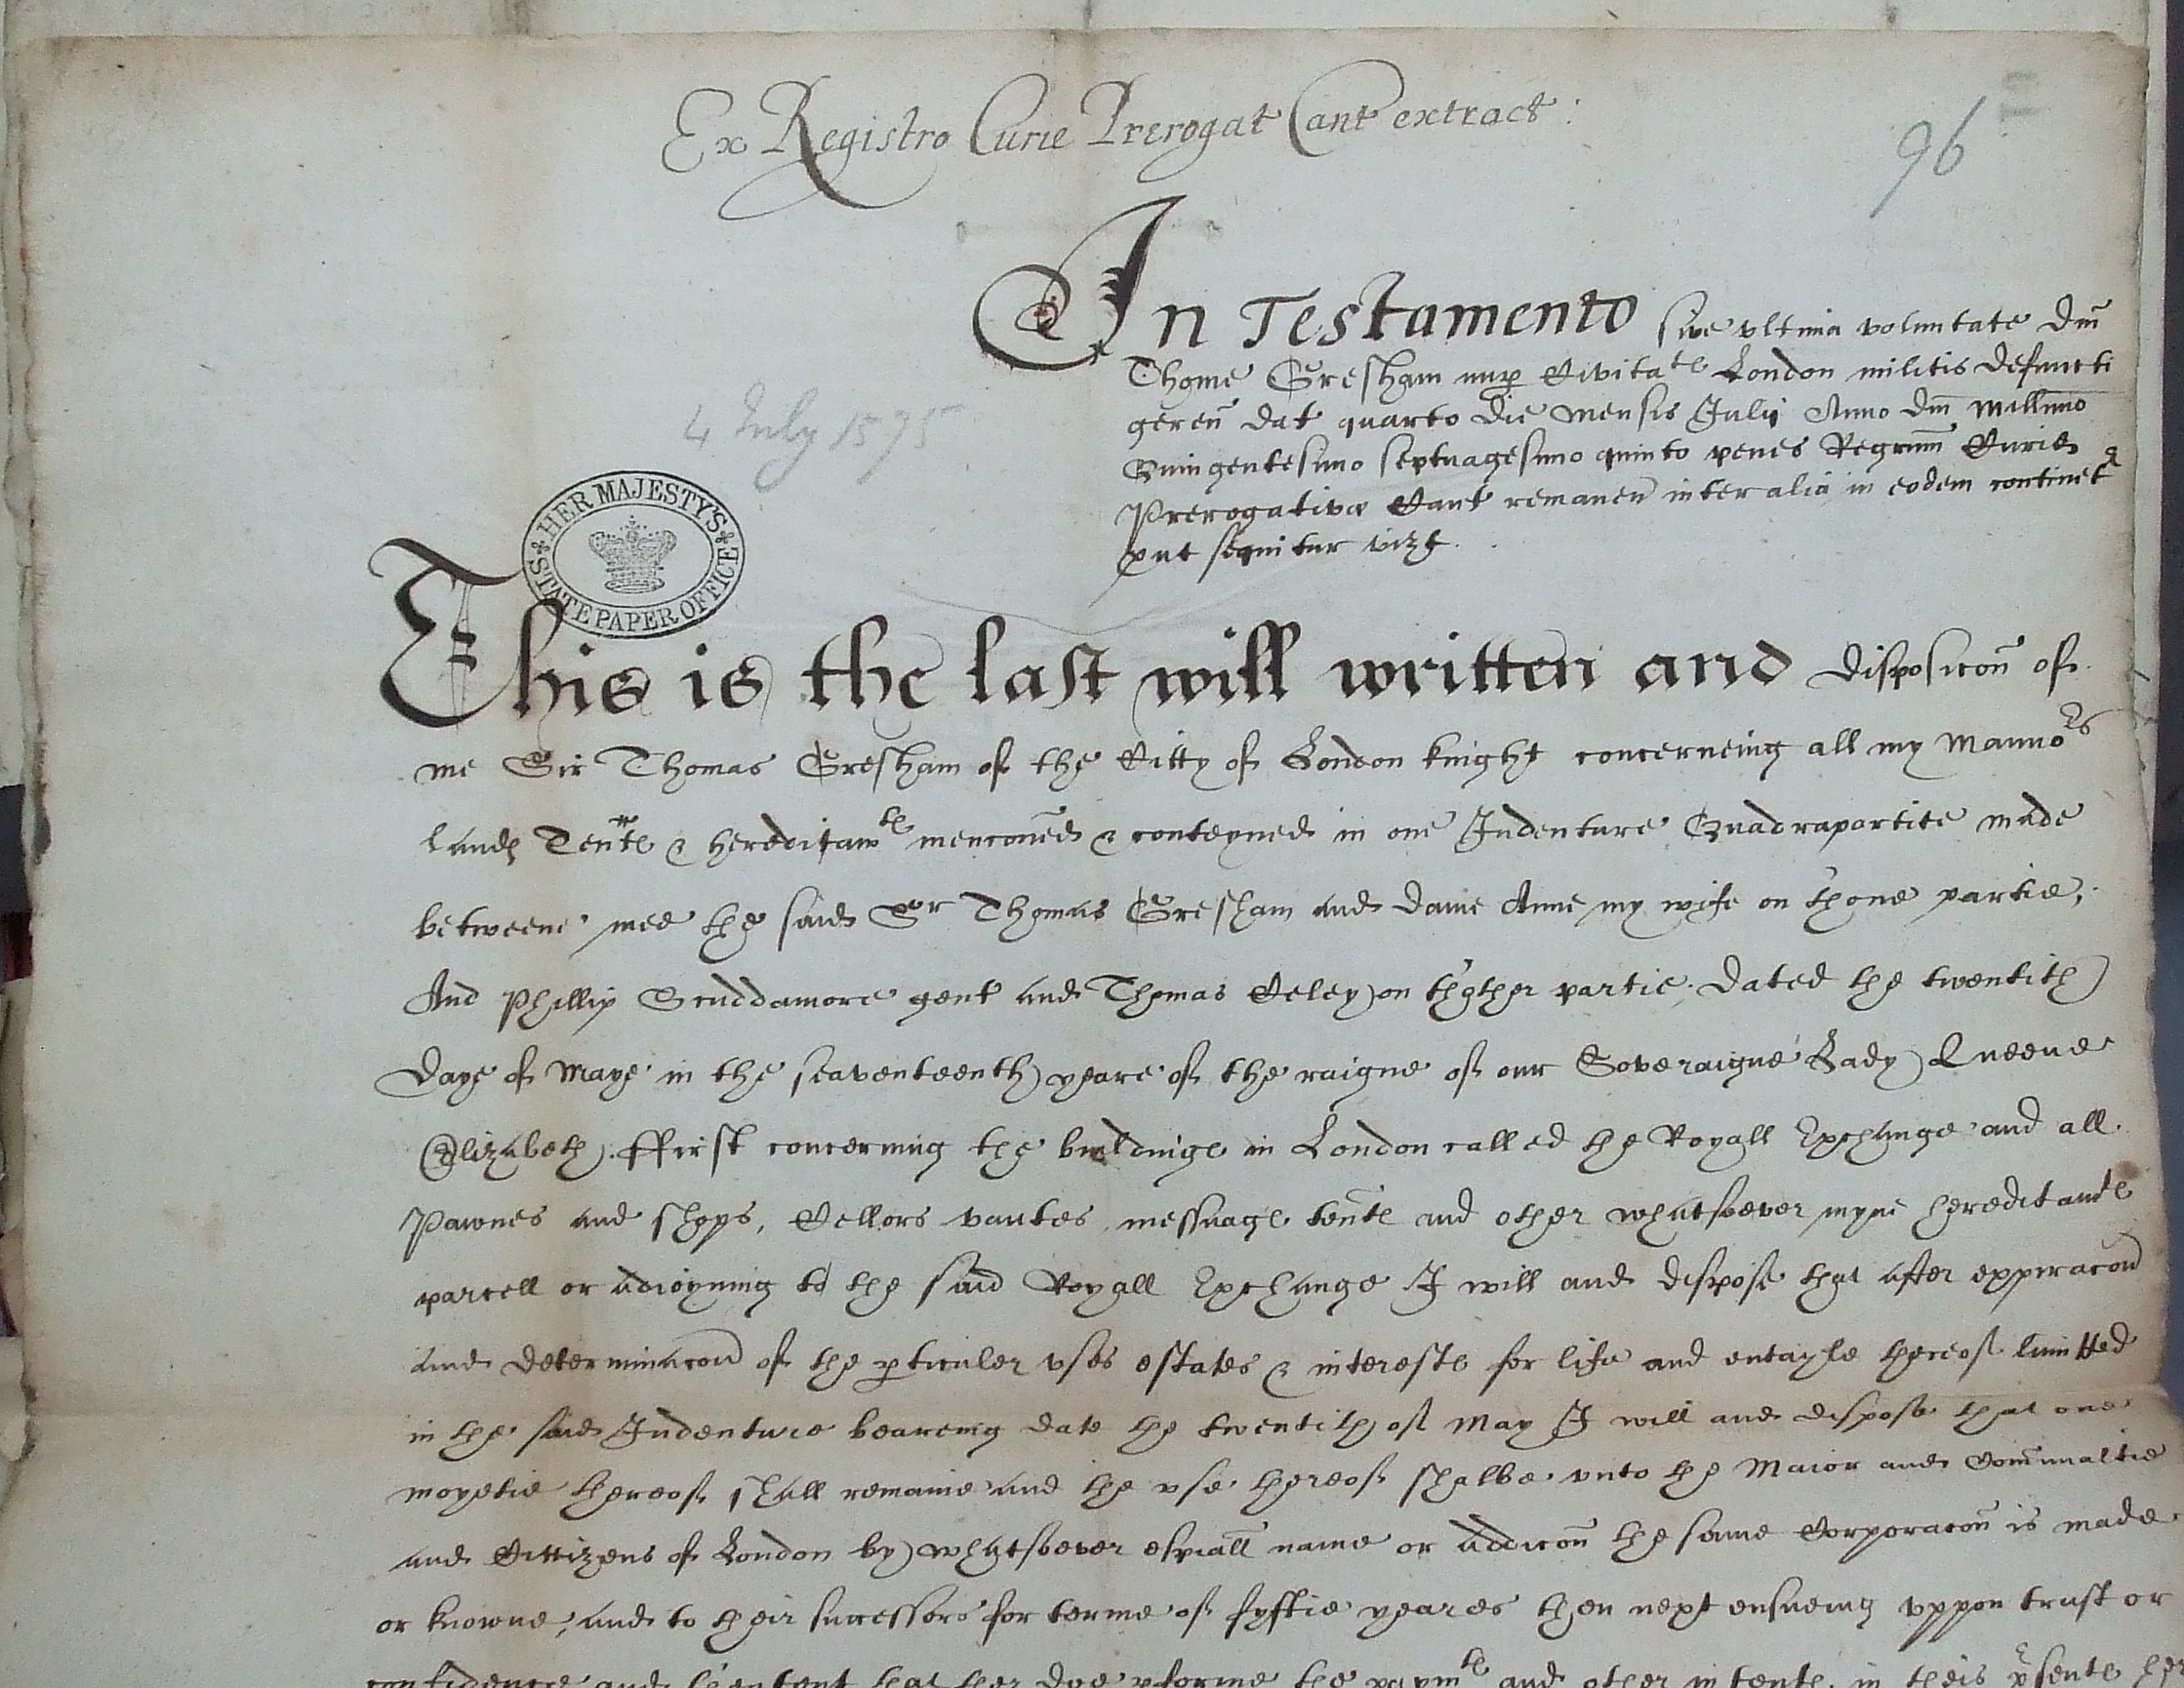 Ex Registro Curie Prerogat Cant extract:
96
In Testamento sive vltima voluntate Dm̄
Thome Gresham nup Civitatẽ London militis defuncti
gereñ dat quarto die mensis Julij Anno Dm̄ Millimo
Quingentesimo septuagesimo quinto penes Regrum̄ Curie
Prerogative Cant remaneñ inter alia in eodem continet
put sequitur vizt.
4 July 1575
HER MAJESTY'S STATE PAPER OFFICE
This is the last will written and disposicoñ of
me Sir Thomas Gresham of the Citty of London knight concerneing all my Mannors
landes Teñtes & hereditamtes mencoñed & conteyned in one Indenture Quadrapartite made
betweene mee the said Sr Thomas Gresham and Dame Anne my wife on thone partie;
And Phillip Scuddamore gent and Thomas Celey on thother partie; Dated the twentith
Daye of Maye in the seaventeenth yeare of the raigne of our Soveraigne Lady Queene
Elizabeth. ffirst concerning the buildinges in London called the Royall Exchange and all
Pawnes and shops, Cellors vautes messuages teñtes and other whatsoever myne hereditamtes
parcell or adioyning to the said Royall Exchange I will and dispose that after expiracoñ
and determinacoñ of the pticuler vses estates & interestes for life and entayle thereof limitted
in the said Indenture beareing date the twentith of May I will and dispose that one
moyetie thereof shall remaine and the vse thereof shalbe vnto the Maior and Com̄unaltie
and Cittizens of London by whatsoever espiall name or addicoñ the same Corporacoñ is made
or knowne, and to their successors for terme of fyftie yeares then next ensueing vppon trust or
confidence and thentent that they doe pforme the paymtes and other intentes in theis psentes